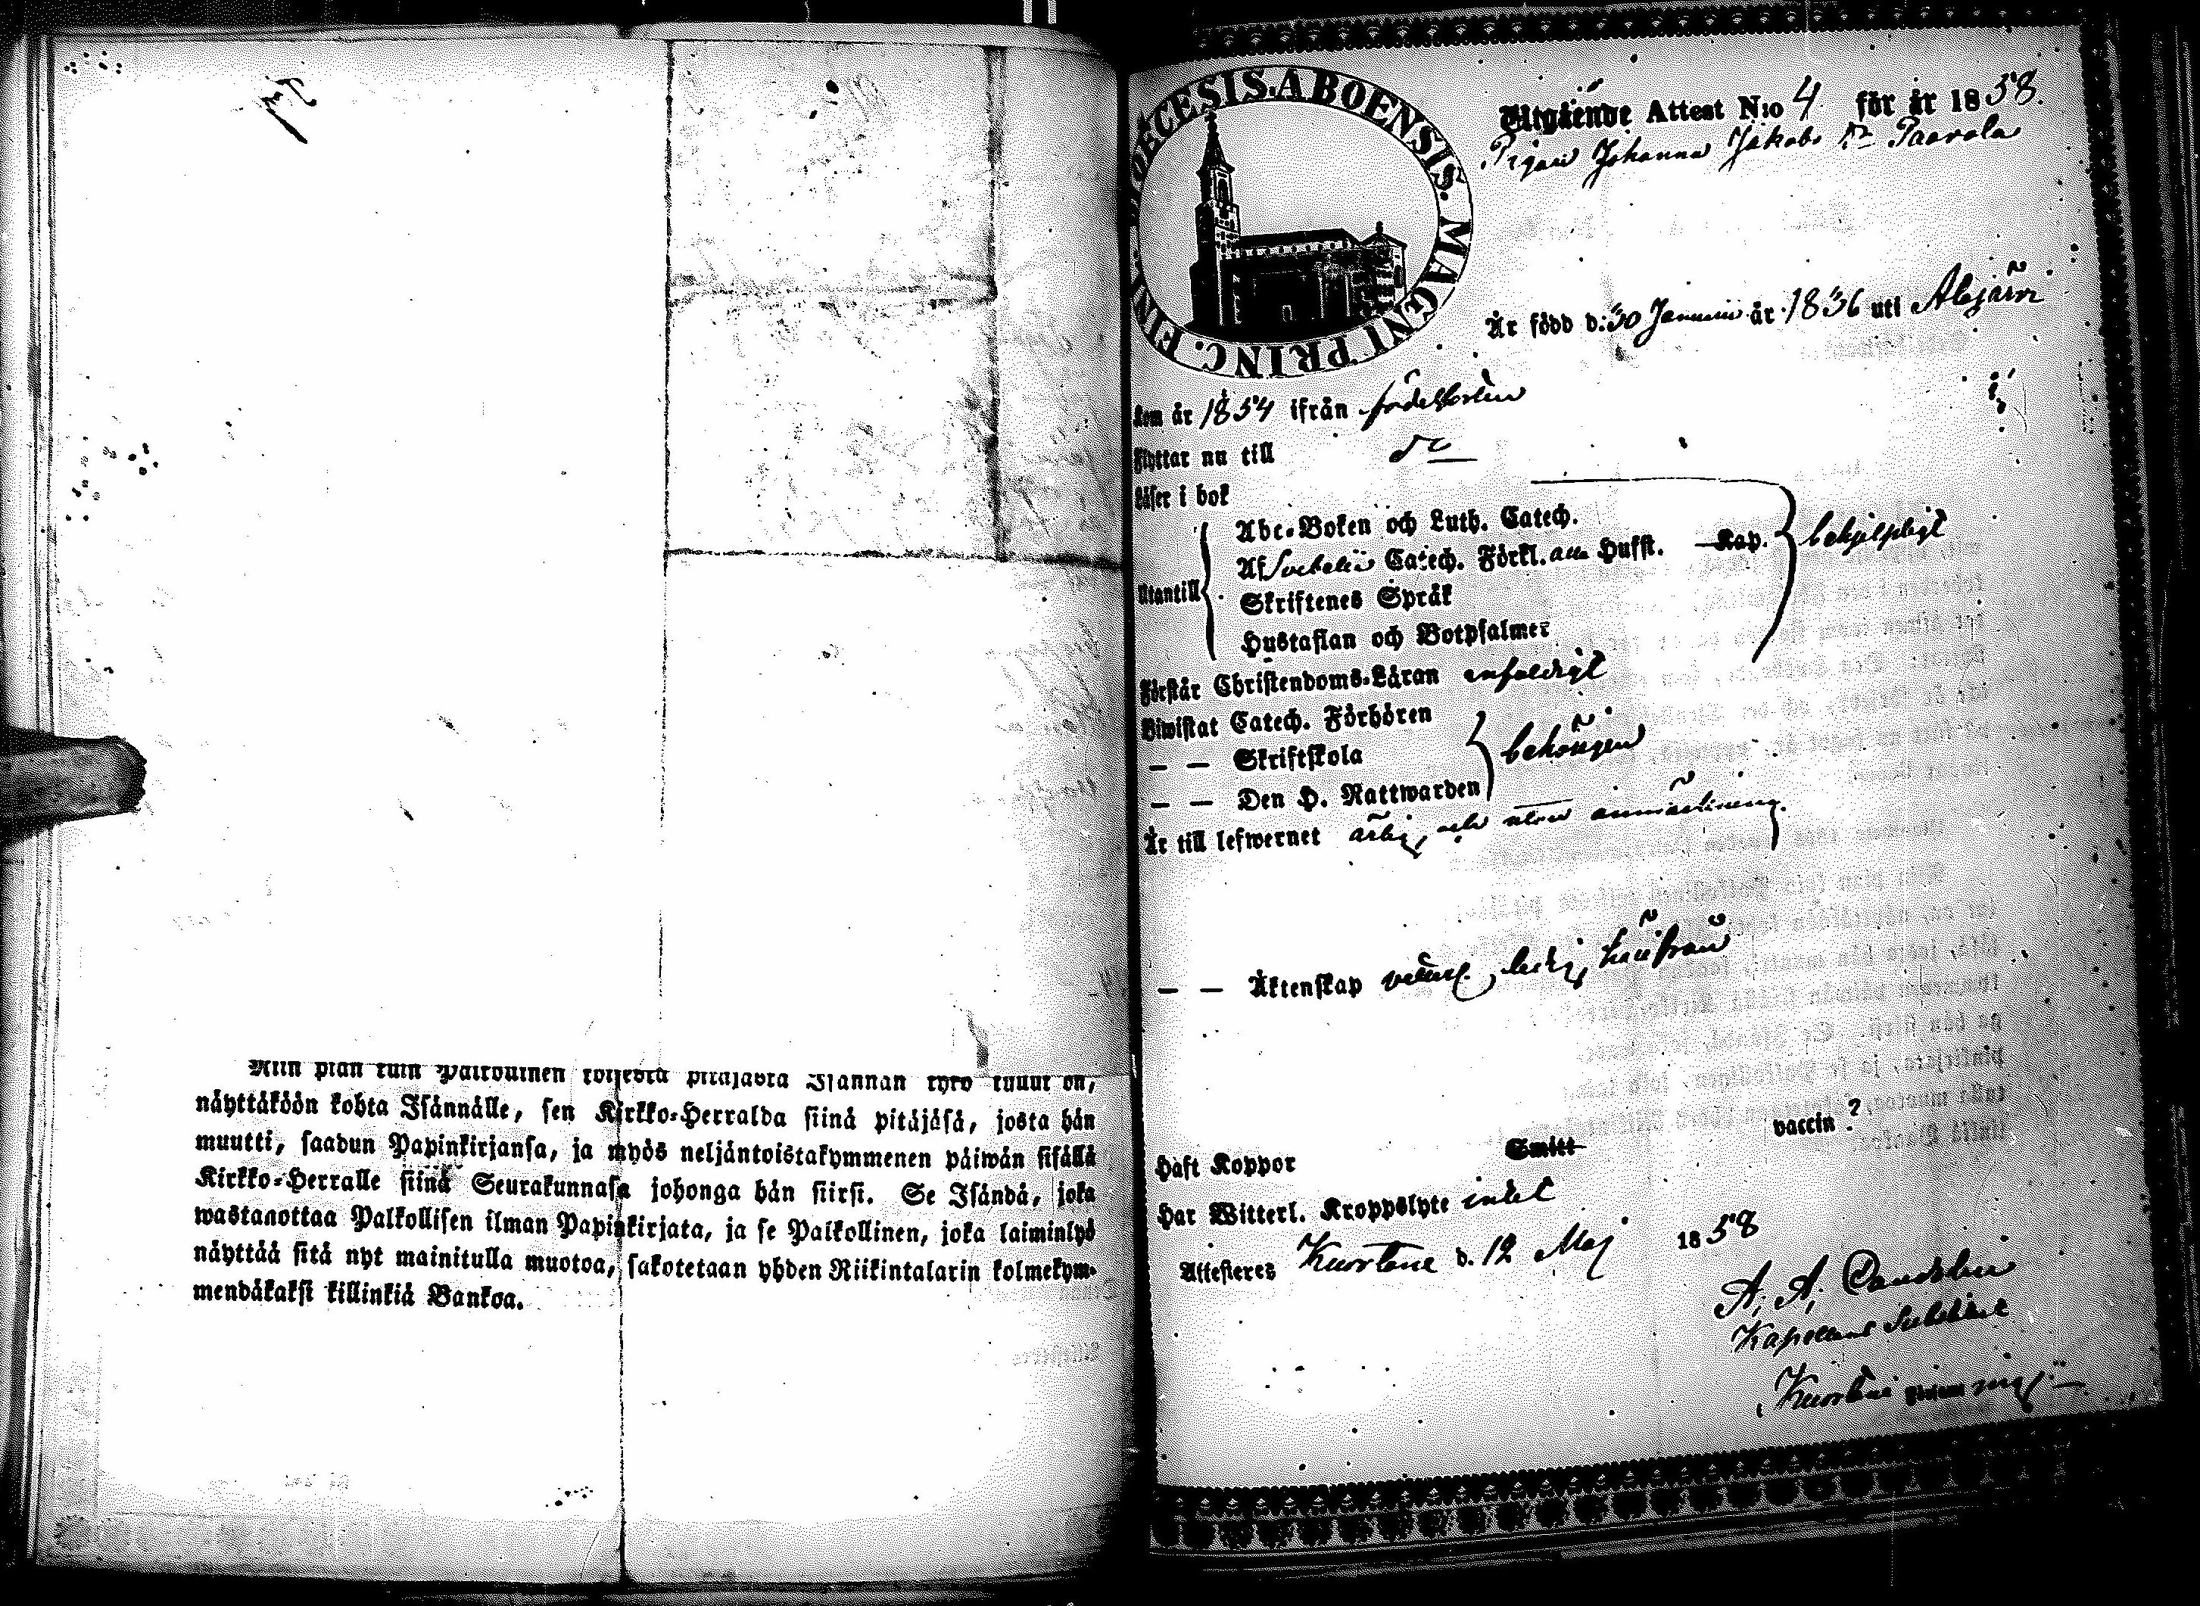 Niin pian kuin Palkollinen toisesta pitäjästä Isännän tykö tullut on,
näyttäköön kohta Isännälle, sen Kirkko-Herralda siinä pitäjäsä, josta hän
muutti, saadun Papinkirjansa, ja myös neljäntoistakymmenen päiwän sisällä
Kirkko-Herralle siinä Seurakunnasa johonga hän siirsi. Se Isändä, joka
wastaaottaa Palkollisen ilman Papinkirjata, ja se Palkollinen, joka laiminlyö
näyttää sitä nyt mainitulla muotoa, sakotetaan yhden Riikintalarin kolmekym-
mendäkaksi killinkiä Bankoa.
DIOECESIS ABOENSIS. MAGNI PRINC. FINL
Utgående Attest N:o 4 för år 1858.
Pigan Johanna Jakobs dr Paavola
Är född d. 30 Januari år 1836 uti Alajärvi
Kom år 1854 ifrån födelseorten
Flyttar nu till do
Läser i bok
Abc-Boken och Luth. Catech.
Utantill Af Svebelii Catech. Förkl. alla Hufst. Kap. behjelpligt
Skriftenes Språk
Hustaflan och Botpsalmer
Förstår Christendoms-Läran enfaldigt
Biwistat Catech. Förhören
— — Skriftskola behörigen
— — Den H. Nattwarden
Är till lefwernet ärlig och utan anmärkning.
— — Äktenskap ledig, hinfrau
Haft Koppor Smitt vaccin ?
Har Witterl. Kroppslyte intet
Attesteras Kuortane d. 12 Maj 1858
A. A.
Kapellans
Kuortane